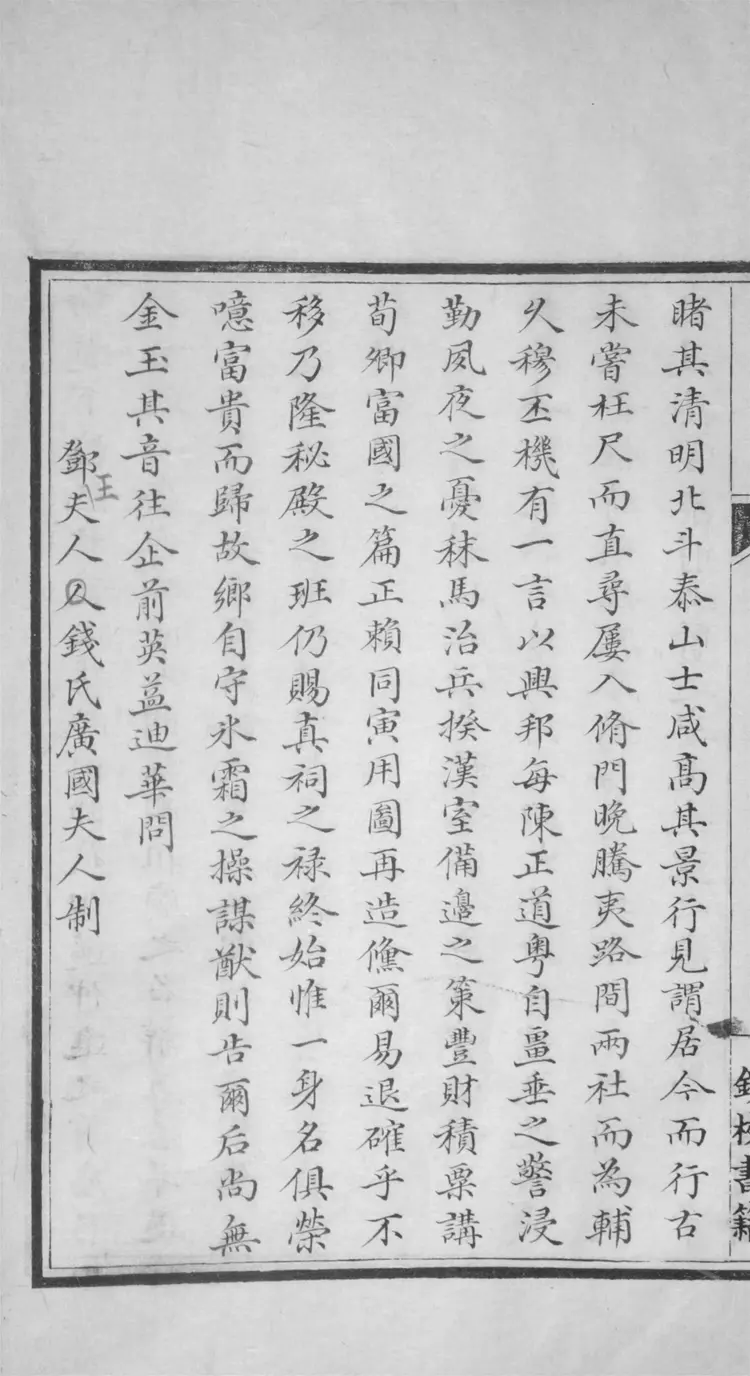 睹其清明北斗泰山士咸髙其景行見謂居今而行古
未嘗枉尺而直尋屢入脩門晚騰夷路間兩社而為輔
乆穆丕機有一言以興邦每陳正道粤自畺垂之警浸
勤夙夜之憂秣馬治兵揆漢室備邉之策豐財積粟講
荀卿富國之篇正賴同寅用圖再造儵爾易退確乎不
移乃隆秘殿之班仍賜真祠之禄終始惟一身名俱榮
噫富貴而歸故鄉自守氷霜之操謀猷則告爾后尚無
金玉其音徃企前英益迪華問
鄧王夫人人錢氏廣國夫人制
書籍